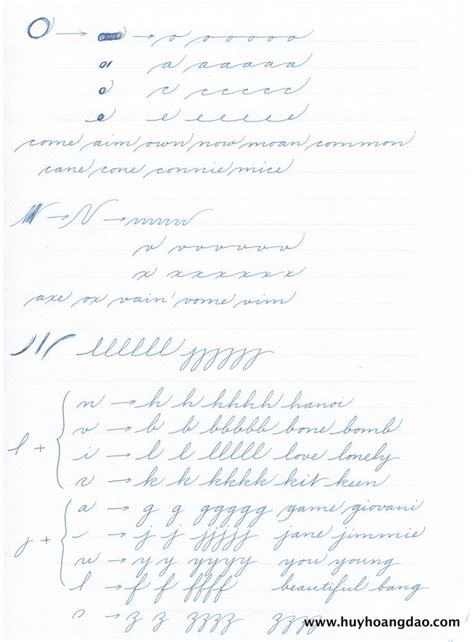 O → → o o o o o o
a a a a a a a
c c c c c c
e e e e e e
come aim own now moan common
cane cone connie mice
N →
v v v v v v v
x x x x x x x
axe ox vain vome vim
llllll jjjjjj
n → h h hhhh hanoi
v → b b bbbbb bone bomb
l + i → l l lllll love lonely
v → k k kkkk kit keen
a → g g ggggg game giovani
j + - → j j jjjjj jane jimmie
u → y y yyyy you young
l → f f ffff beautiful bang
z z zzz zzzz
www.huyhoangdao.com